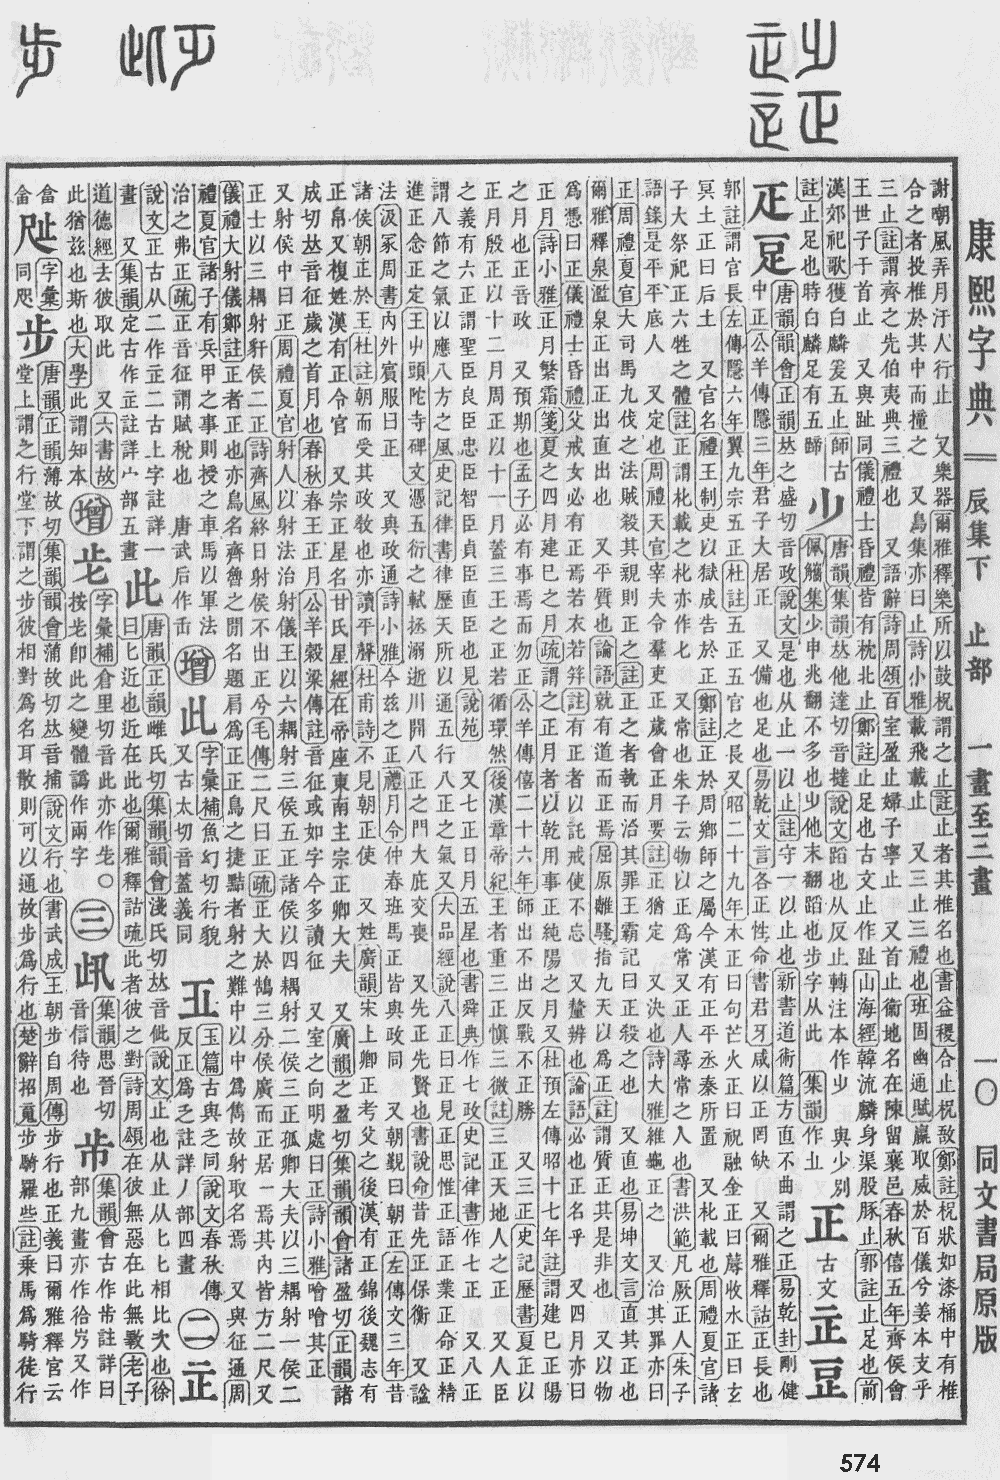 康熙字典 辰集下 止部 一畫至三畫 一〇 同文書局原版
謝嘲風弄月汙人行止 又樂器爾雅釋樂所以鼓柷謂之止註止者其椎名也書益稷合止柷敔鄭註柷狀如漆桶中有椎
合之者投椎於其中而撞之 又鳥集亦曰止詩小雅載飛載止 又三止三禮也班固幽通賦嬴取威於百儀兮姜本支乎
三止註謂齊之先伯夷典三禮也 又語辭詩周頌百室盈止婦子寧止 又首止衞地名在陳留襄邑春秋僖五年齊侯會
王世子于首止 又與趾同儀禮士昏禮皆有枕北止鄭註止足也古文止作趾山海經韓流麟身渠股豚止郭註止足也前
漢郊祀歌獲白麟爰五止師古
註止足也時白麟足有五蹄
唐韻集韻𠀤他達切音撻說文蹈也从反止轉注本作少 與少別
佩觿集少申兆翻不多也少他末翻蹈也步字从此 集韻作
正 古文
唐韻韻會正韻𠀤之盛切音政說文是也从止一以止註守一以止也新書道術篇方直不曲謂之正易乾卦剛健
中正公羊傳隱三年君子大居正 又備也足也易乾文言各正性命書君牙咸以正罔缺 又爾雅釋詁正長也
郭註謂官長左傳隱六年翼九宗五正杜註五正五官之長又昭二十九年木正曰句芒火正曰祝融金正曰蓐收水正曰玄
冥土正曰后土 又官名禮王制史以獄成告於正鄭註正於周鄉師之屬今漢有正平丞秦所置 又朼載也周禮夏官諸
子大祭祀正六牲之體註正謂朼載之朼亦作七 又常也朱子云物以正為常又正人尋常之人也書洪範凡厥正人朱子
語錄是平平底人 又定也周禮天官宰夫令羣吏正歲會正月要註正猶定 又決也詩大雅維龜正之 又治其罪亦曰
正周禮夏官大司馬九伐之法賊殺其親則正之註正之者執而治其罪王霸記曰正殺之也 又直也易坤文言直其正也
爾雅釋泉濫泉正出正出直出也 又平質也論語就有道而正焉屈原離騷指九天以為正註謂質正其是非也 又以物
為憑曰正儀禮士昏禮父戒女必有正焉若衣若笄註有正者以託戒使不忘 又釐辨也論語必也正名乎 又四月亦曰
正月詩小雅正月繁霜箋夏之四月建巳之月疏謂之正月者以乾用事正純陽之月又杜預左傳昭十七年註謂建巳正陽
之月也正音政 又預期也孟子必有事焉而勿正公羊傳僖二十六年師出不正反戰不正勝 又三正史記歷書夏正以
正月殷正以十二月周正以十一月蓋三王之正若循環然後漢章帝紀王者重三正愼三微註三正天地人之正 又人臣
之義有六正謂聖臣良臣忠臣智臣貞臣直臣也見說苑 又七正日月五星也書舜典作七政史記律書作七正 又八正
謂八節之氣以應八方之風史記律書律歷天所以通五行八正之氣又大品經說八正曰正見正思惟正語正業正命正精
進正念正定王屮頭陀寺碑文憑五衍之軾拯溺逝川開八正之門大庇交喪 又先正先賢也書說命昔先正保衡 又諡
法汲冢周書內外賓服曰正 又與政通詩小雅今茲之正禮月令仲春班馬正皆與政同 又朝覲曰朝正左傳文三年昔
諸侯朝正於王杜註朝而受其政敎也亦讀平聲杜甫詩不見朝正使 又姓廣韻宋上卿正考父之後漢有正錦後魏志有
正帛又複姓漢有正令官 又宗正星名甘氏星經在帝座東南主宗正卿大夫 又廣韻之盈切集韻韻會諸盈切正韻諸
成切𠀤音征歲之首月也春秋春王正月公羊穀梁傳註音征或如字今多讀征 又室之向明處曰正詩小雅噲噲其正
又射侯中曰正周禮夏官射人以射法治射儀王以六耦射三侯五正諸侯以四耦射二侯三正孤卿大夫以三耦射一侯二
正士以三耦射豻侯二正詩齊風終日射侯不出正兮毛傳二尺曰正疏正大於鵠三分侯廣而正居一焉其內皆方二尺又
儀禮大射儀鄭註正者正也亦鳥名齊魯之閒名題肩為正正鳥之捷黠者射之難中以中為雋故射取名焉 又與征通周
禮夏官諸子有兵甲之事則授之車馬以軍法
治之弗正疏正音征謂賦稅也 唐武后作
增 此 字彙補魚幻切行貌
又古太切音蓋義同
玉篇古與之同說文春秋傳
反正為乏註詳丿部四畫
二
說文正古从二作二古上字註詳一
畫 又集韻定古作註詳宀部五畫
此 唐韻正韻雌氏切集韻韻會淺氏切𠀤音佌說文止也从止从匕匕相比次也徐
曰匕近也近在此也爾雅釋詁疏此者彼之對詩周頌在彼無惡在此無斁老子
道德經去彼取此 又六書故
此猶茲也斯也大學此謂知本
增 字彙補倉里切音此亦作
按 卽此之變體譌作兩字
三 集韻思晉切
音信待也
集韻會古作峕註詳日
部九畫亦作
字彙
同咫
步 唐韻正韻薄故切集韻韻會蒲故切𠀤音捕說文行也書武成王朝步自周傳步行也正義曰爾雅釋宮云
堂上謂之行堂下謂之步彼相對為名耳散則可以通故步為行也楚辭招䰟步騎羅些註乘馬為騎徒行
574